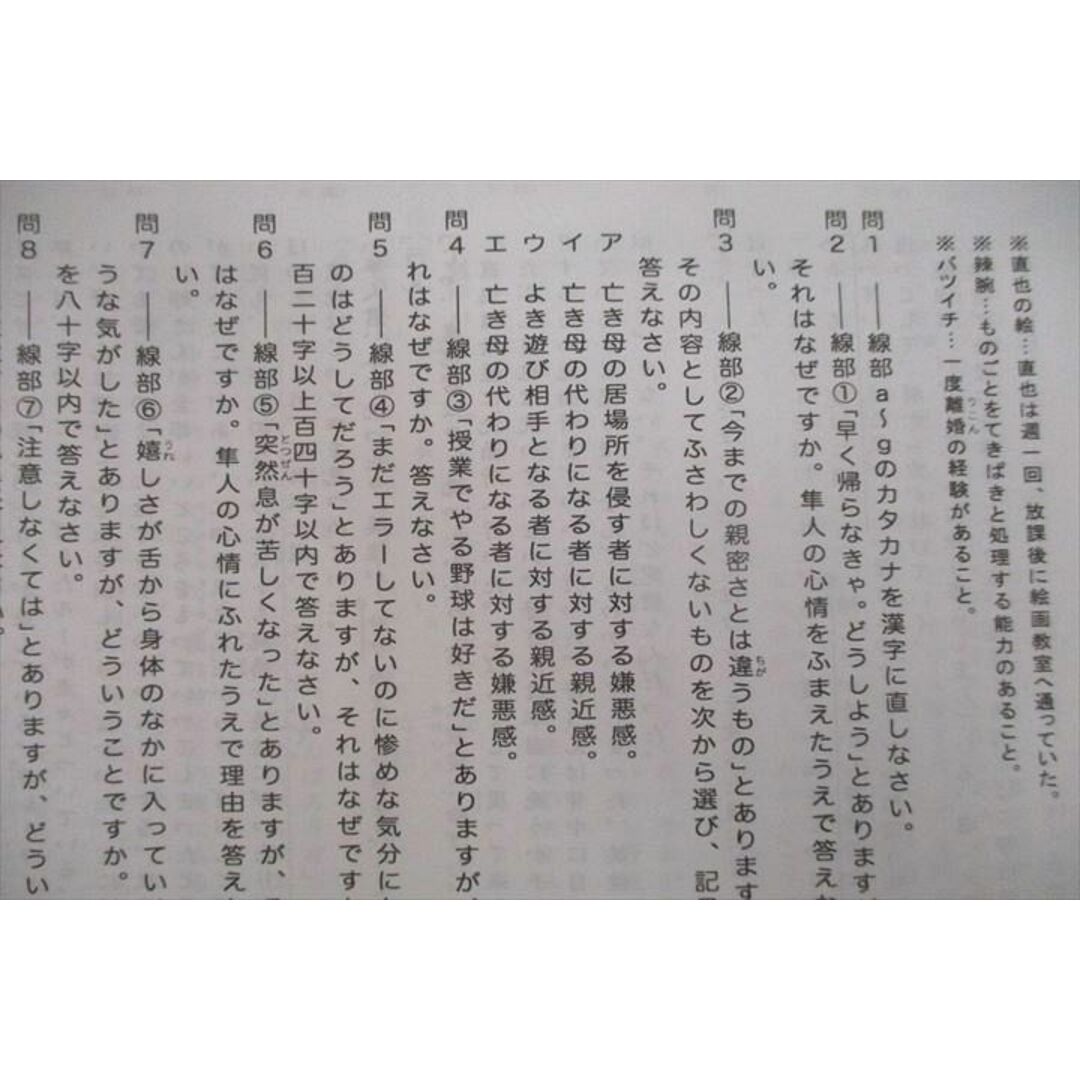 ※直也の絵…直也は週一回、放課後に絵画教室へ通っていた。
※辣腕…ものごとをてきぱきと処理する能力のあること。
※バツイチ…一度離婚の経験があること。
問1 ――線部a〜gのカタカナを漢字に直しなさい。
問2 ――線部①「早く帰らなきゃ。どうしよう」とあります
それはなぜですか。隼人の心情をふまえたうえで答え
い。
問3 ――線部②「今までの親密さとは違うもの」とあります
その内容としてふさわしくないものを次から選び、記
答えなさい。
ア 亡き母の居場所を侵す者に対する嫌悪感。
イ 亡き母の代わりになる者に対する親近感。
ウ よき遊び相手となる者に対する親近感。
エ 亡き母の代わりになる者に対する嫌悪感。
問4 ――線部③「授業でやる野球は好きだ」とありますが、
れはなぜですか。答えなさい。
問5 ――線部④「まだエラーしてないのに惨めな気分に
のはどうしてだろう」とありますが、それはなぜです
百二十字以上百四十字以内で答えなさい。
問6 ――線部⑤「突然息が苦しくなった」とありますが、
はなぜですか。隼人の心情にふれたうえで理由を答え
い。
問7 ――線部⑥「嬉しさが舌から身体のなかに入ってい
うな気がした」とありますが、どういうことですか。
を八十字以内で答えなさい。
問8 ――線部⑦「注意しなくては」とありますが、どうい